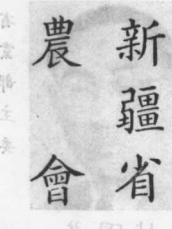 新疆省
農會